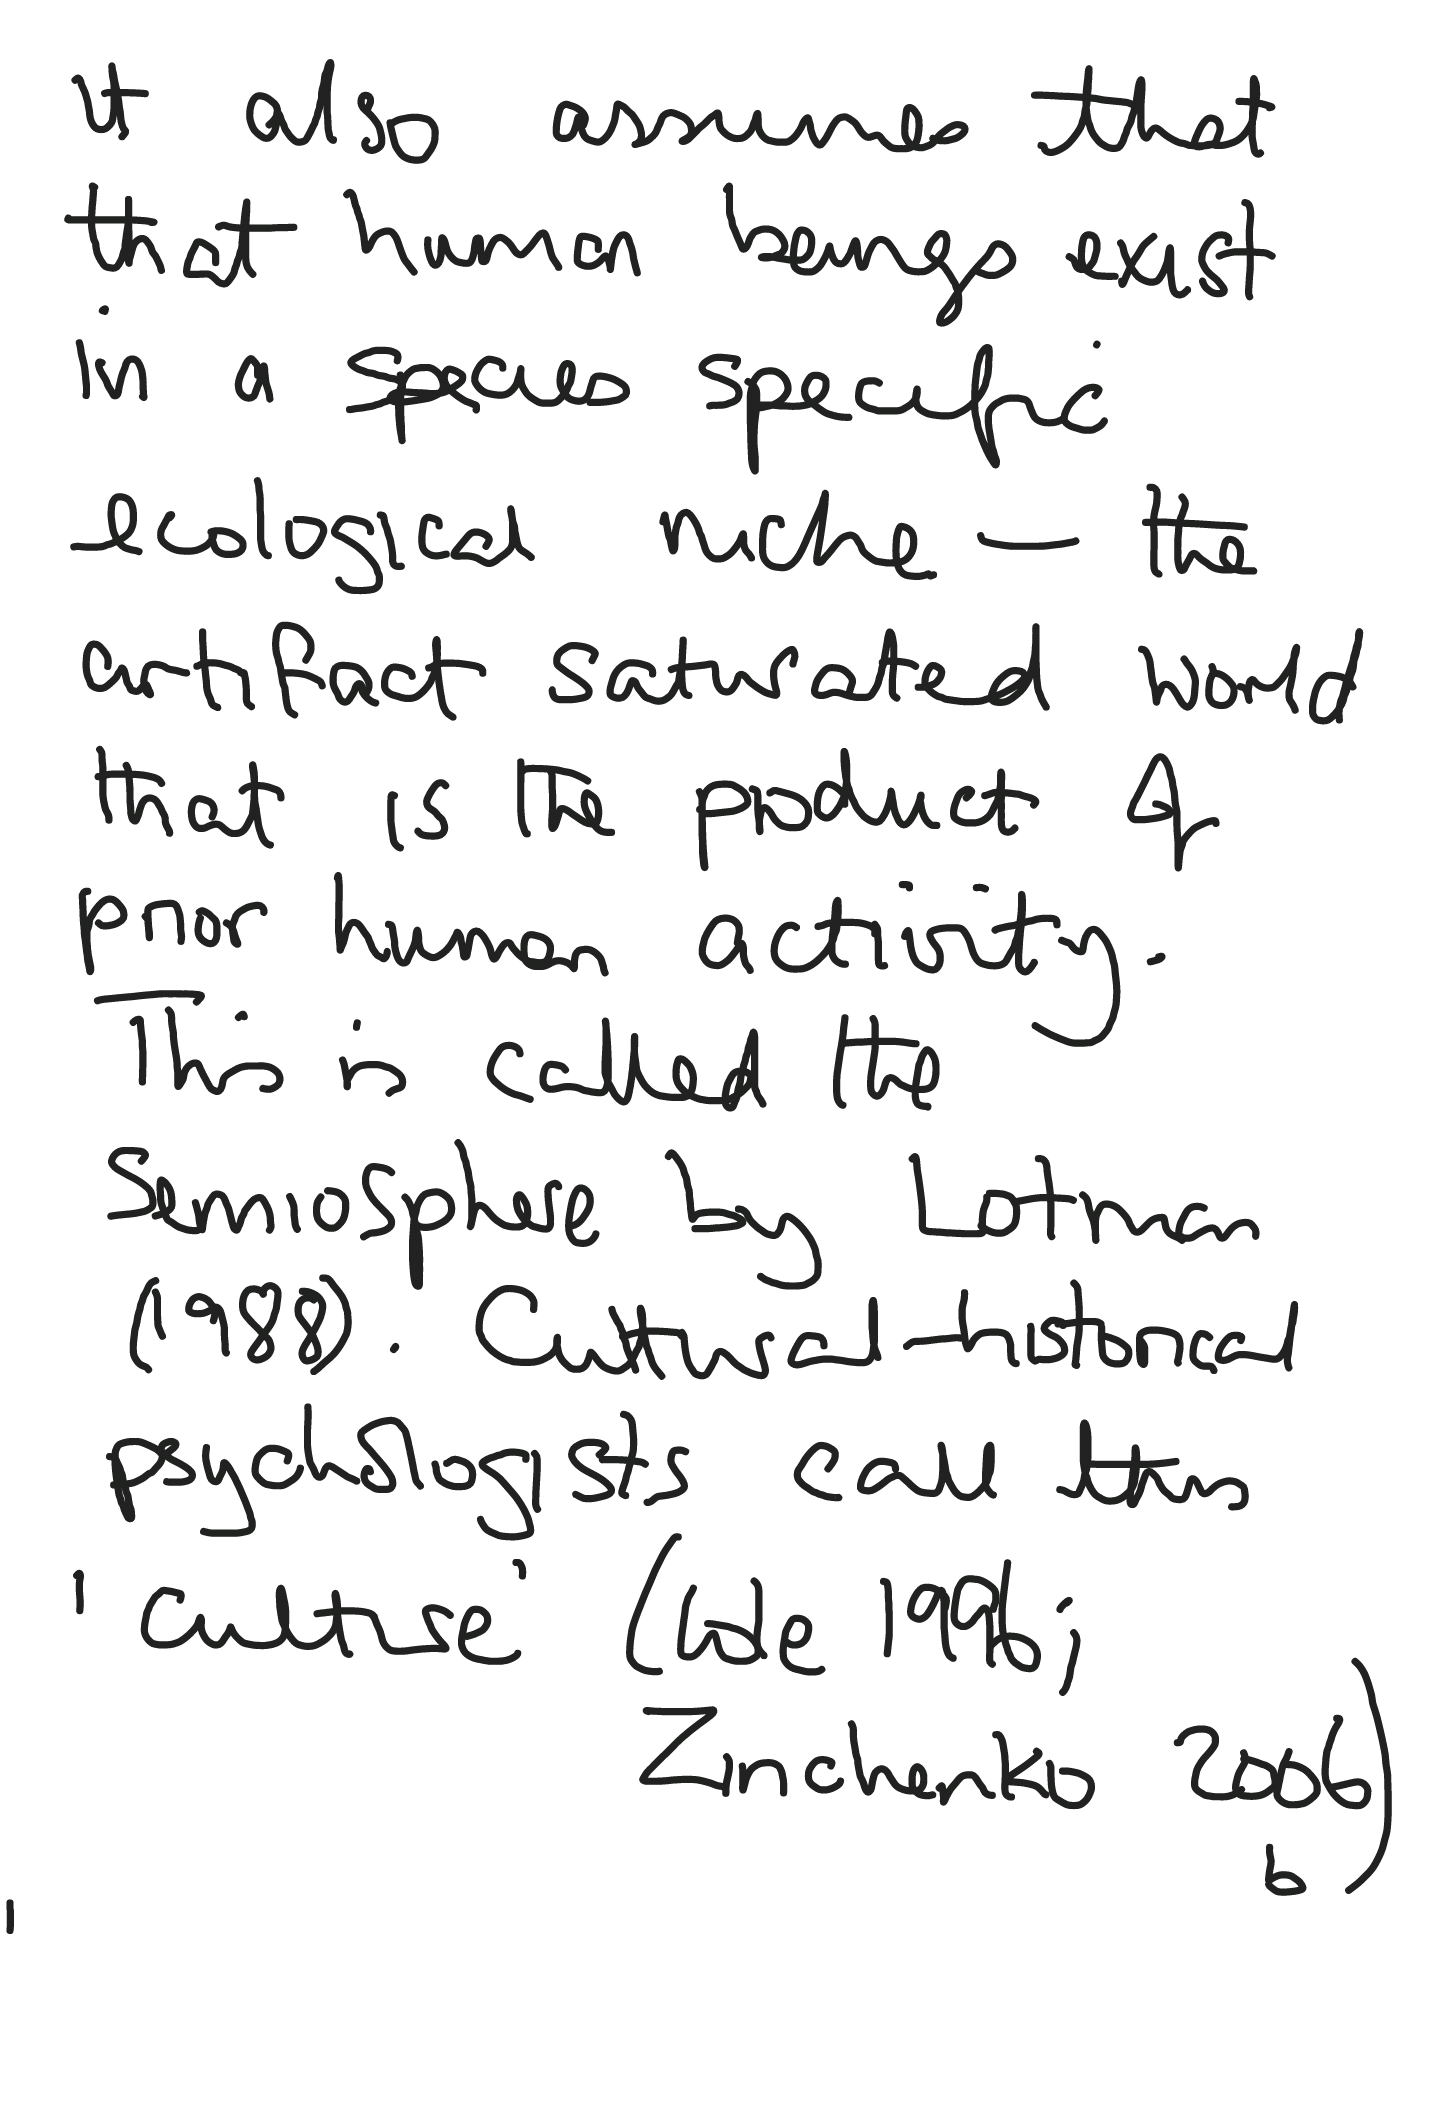 it also assumes that
that human beings exist
in a species specific
ecological niche — the
artifact saturated world
that is the product of
prior human activity.
This is called the
Semiosphere by Lotman
(1988). Cultural-historical
psychologists call this
'culture' (Cole 1996;
Zinchenko 2006)
b